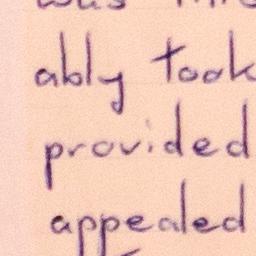 was
ably took
provided
appealed